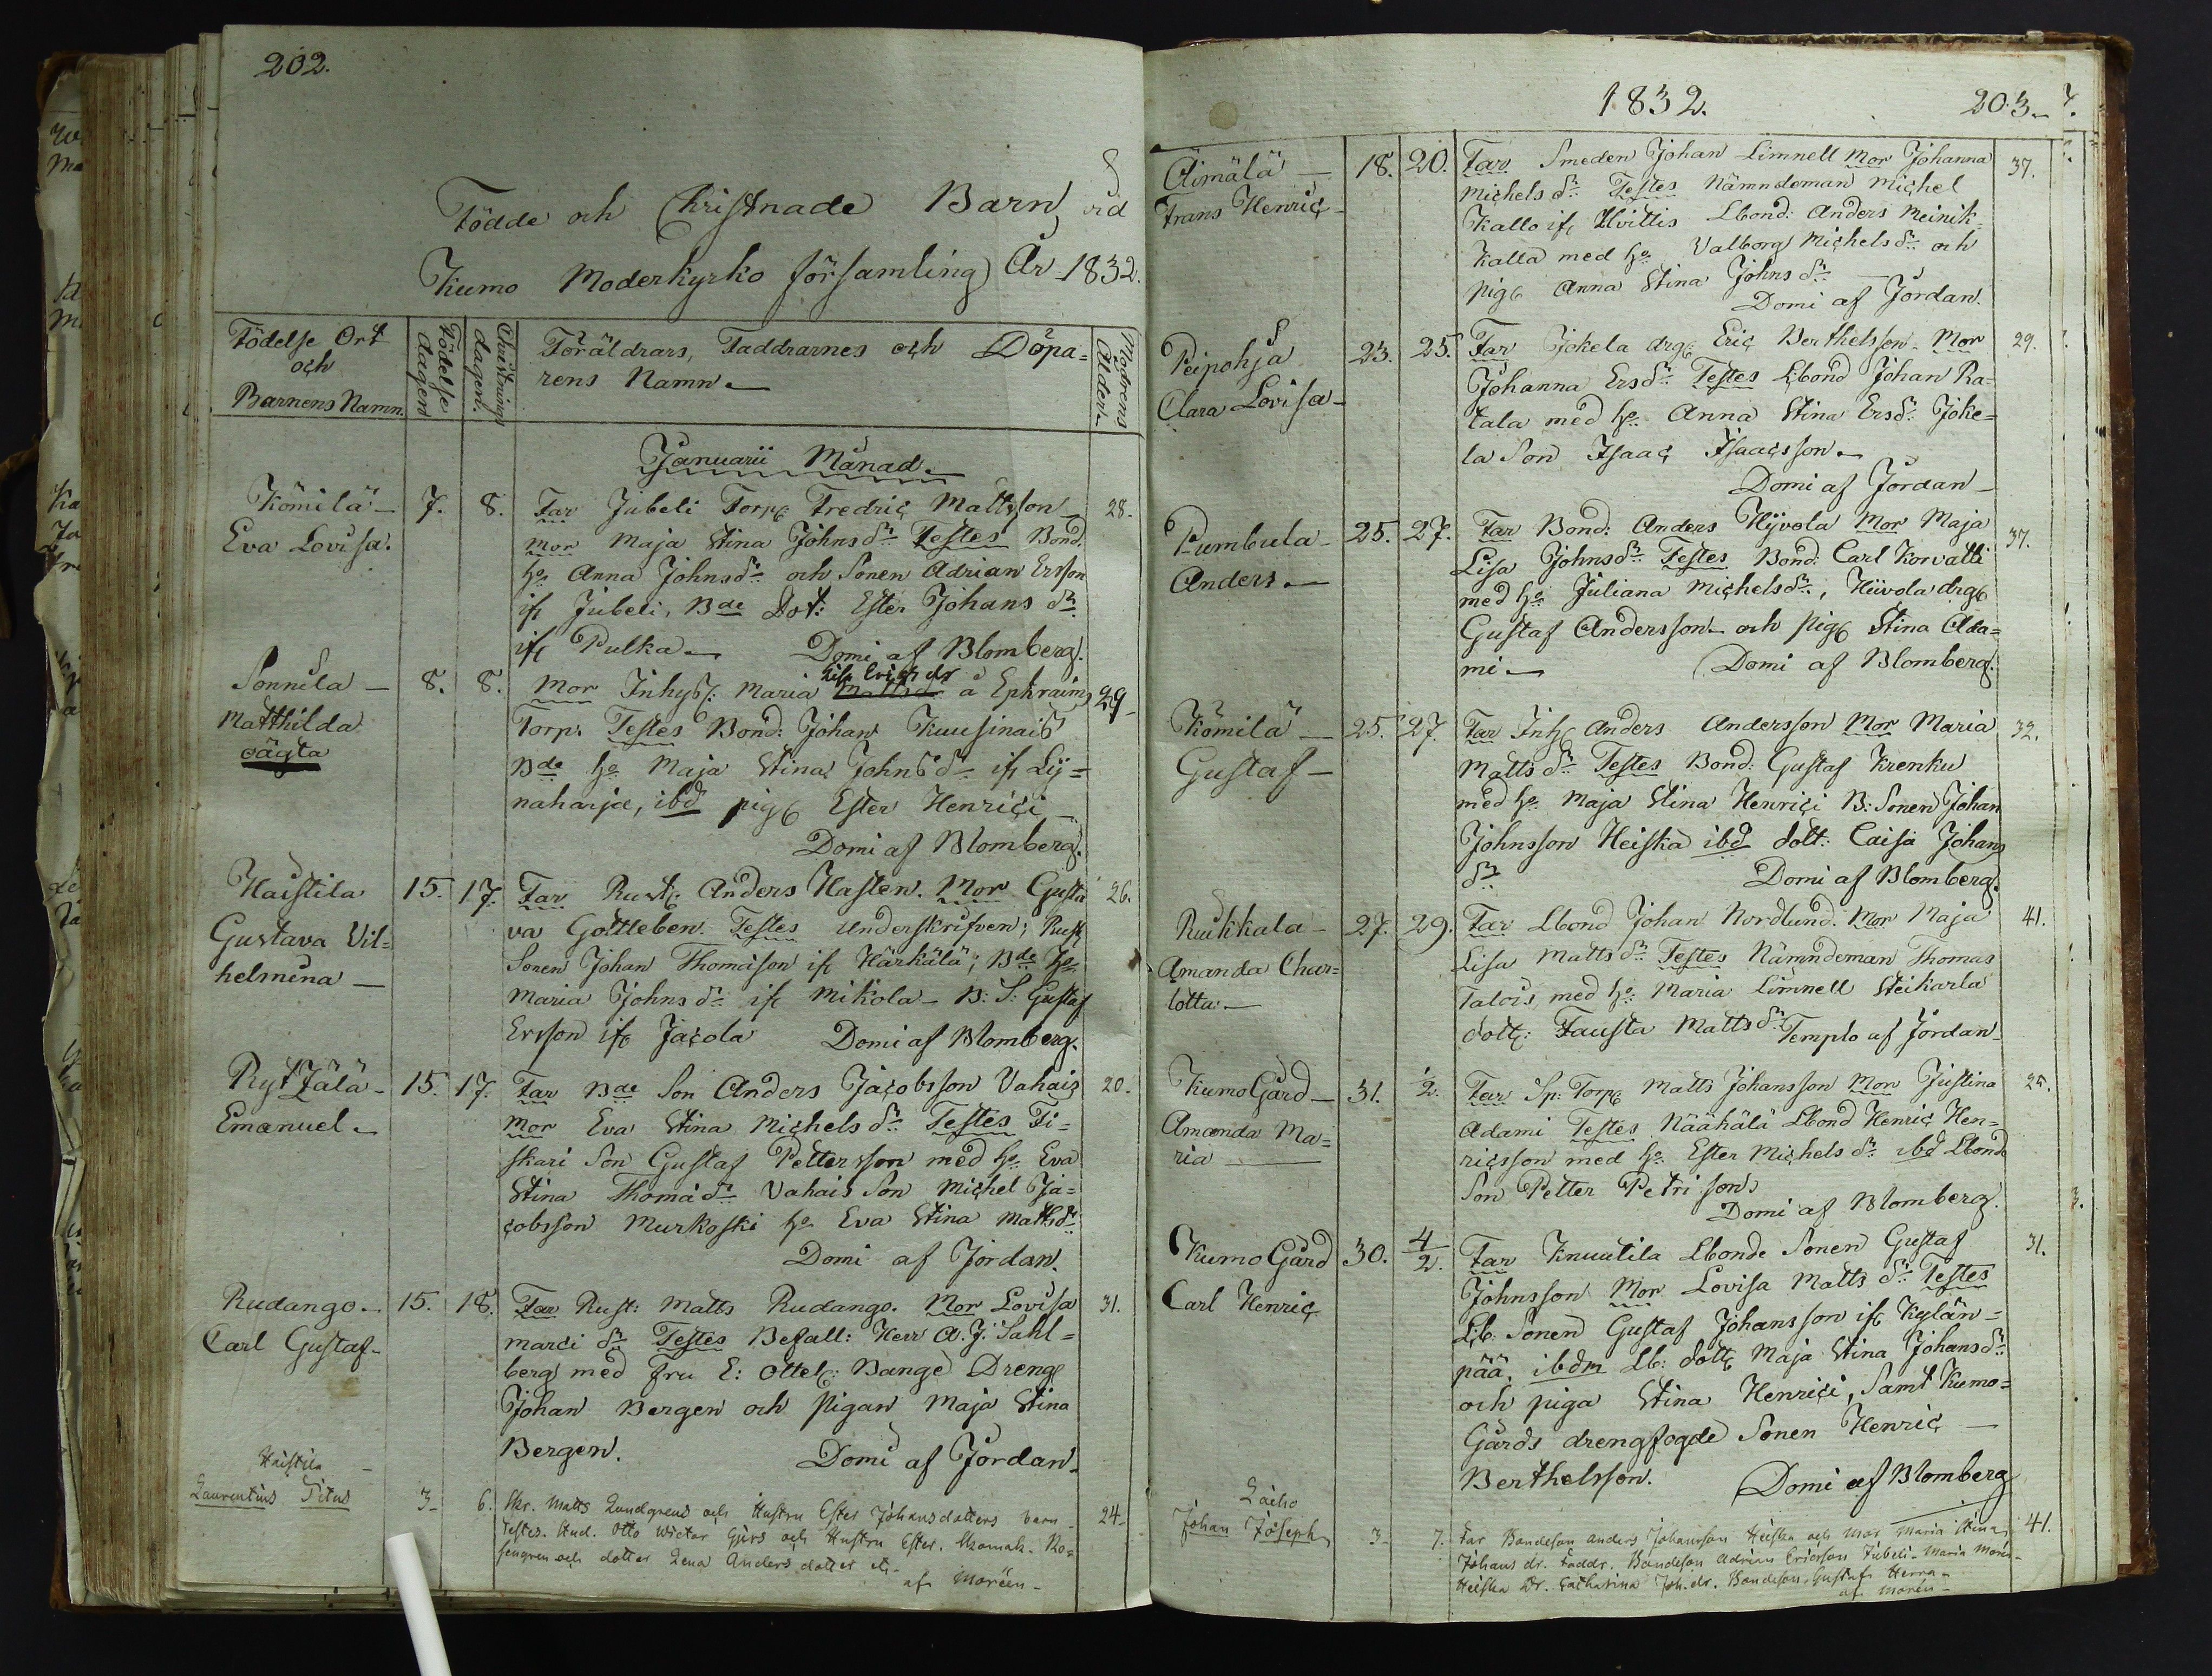 202.
Födde och Christnade Barn vid
Kumo Moderkyrko församling År 1832.
Födelse Ort
och
Barnens Namn.
Födelse
dagen
Christnings
dagen.
Föräldrars, Faddrarnes och Döpa=
rens Namn
Modrens
Ålder
Januarii Månad
Kömilä
Eva Lovisa.
7.
8.
Far Jubeli Torp. Fredriç Mattsson
Mor Maja Stina Johns dr. Testes Bond.
ho Anna Johnsdr. och Sonen Adrian Ersson
ifr Jubeli, Bde Dot: Ester Johans dr.
ifr Pulka Domi af Blomberg.
28.
Sonnila
Matthilda
oägta
8.
8.
Lisa Erichs dr
Mor Inhys: Maria Mattsdr å Ephraims
Torp. Testes Bond: Johan Kuusinais
Bde ho Maja Stina Johns dr. ifr Lij=
naharja, ibd pig. Ester Henriçi
Domi af Blomberg.
29
Haistila
Gustava Vil=
helmina
15.
17.
Far Rust. Anders Hasten. Mor Gusta
va Gottleben. Testes Underskrifven; Rust.
Sonen Johan Thomason ifr Härkälä; Bde ho
Maria Johns dr. ifr Mikola B: S: Gustaf
Ersson ifr Jaçola Domi af Blomberg.
26.
Ryt Jälä
Emanuel
15.
17.
Far Bde Son Anders Jaçobsson Vahais
Mor Eva Stina Miçhels dr. Testes Fi=
skari Son Gustaf Pettersson med ho Eva
Stina Thomä dr. Vahais Son Miçhel Ja=
çobsson Murkoski ho Eva Stina Matts dr.
Domi af Jordan.
20.
Rudango
Carl Gustaf
15.
18.
Far Rust: Matts Rudango. Mor Lovisa
marci dr. Testes Befall: Herr A. J. Sahl=
berg med Fru E: Ottel: Bange Dreng
Johan Bergen och Pigan Maja Stina
Bergen. Domi af Jordan
31.
Haistila
Laurentius Titus
3
6.
Skr. Matts Lundgrens och Hustru Ester Johansdotters barn
Testes. Stud. Otto Wictor Gjös och Hustru Ester. Skomak. Ro=
sengren och dotter Lena Anders dotter etc.
af Moréen
24
1832.
203
Äimälä
Frans Henriç
18.
20.
Far Smeden Johan Limnell Mor Johanna
Miçhels dr. Testes Nämndeman Miçhel
Kallo ifr Hvittis Lbond: Anders Meinik=
kalla med ho Valborg Miçhels dr. och
pig. Anna Stina Johns dr.
Domi af Jordan.
37.
Peipohja
Clara Lovisa
23.
25.
Far Jokela drg. Eriç Berthelsson Mor
Johanna Ersdr. Testes Lbond Johan Ra=
tala med ho Anna Stina Ersdr. Joke=
la Son Isaaç Isaaçsson
Domi af Jordan
29.
Pumbula
Anders
25.
27.
Far Bond: Anders Hyvola Mor Maja
Lisa Johnsdr. Testes Bond: Carl Korvatti
med ho Juliana Miçhelsdr., Hiivola drg.
Gustaf Andersson och pig. Stina Ada=
mi Domi af Blomberg.
37.
Kömilä
Gustaf
25.
27.
Far Inh. Anders Andersson Mor Maria
Matts dr. Testes Bond: Gustaf Krenku
med ho Maja Stina Henriçi B: Sonen Johan
Johnsson Heiska ibd dott: Caisa Johans
dr. Domi af Blomberg.
32.
Ruikkala
Amanda Char=
lotta
27.
29.
Far Lbond Johan Nordlund. Mor Maja
Lisa Matts dr. Testes Nämndeman Thomas
Talois, med ho: Maria Limnell Steikarla
dott: Fausta Matts dr. Templo af Jordan
41.
Kumo Gård
Amanda Ma=
ria
31.
1/2.
Far Sp: Torp. Matts Johansson Mor Justina
Adami Testes Näähälä Lbond Henriç Hen=
riçsson med ho Ester Miçhels dr. ibd Lbonde
Son Petter Petri son.
Domi af Blomberg.
25.
Kumo Gård
Carl Henriç
30.
4/2.
Far Knuutila Lbonde Sonen Gustaf
Johnsson Mor Lovisa Matts dr. Testes
Lb: Sonen Gustaf Johansson ifr Kylän=
pää, ibdm Lb: dott. Maja Stina Johans dr.
och piga Stina Henriçi, Samt Kumo=
Gårds drengfogde Sonen Henriç
Berthelsson. Domi af Blomberg
31.
Laiho
Johan Joseph
3
7.
Far Bondeson Anders Johansson Heiska och Mor Maria Stina
Johans dr. Faddr. Bondeson Adrian Ericsson Jubeli Maria Morén
Heiska Dr. Catharina Joh. dr. Bondeson, Gustaf Herra
af Morén
41.